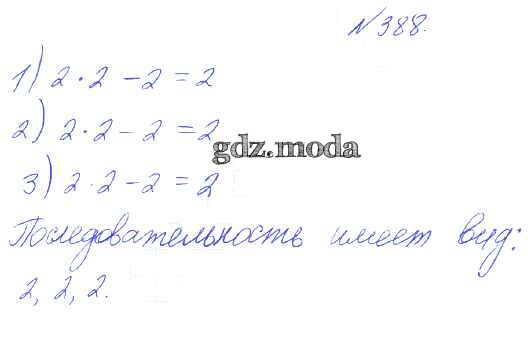 №388.
1) 2·2-2=2
2) 2·2-2=2
gdz.moda
3) 2·2-2=2
Последовательность имеет вид:
2, 2, 2.